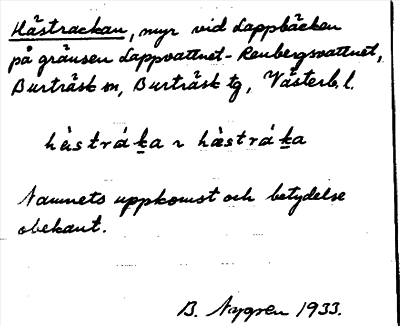 Hästrackan, myr vid Lappbäcken
på gränsen Lappvattnet-Renbergsvattnet,
Burträsk sn, Burträsk tg, Västerb. l.
hástráka ~ hàstráka
Namnets uppkomst och betydelse
obekant.
B. Nygren 1933.